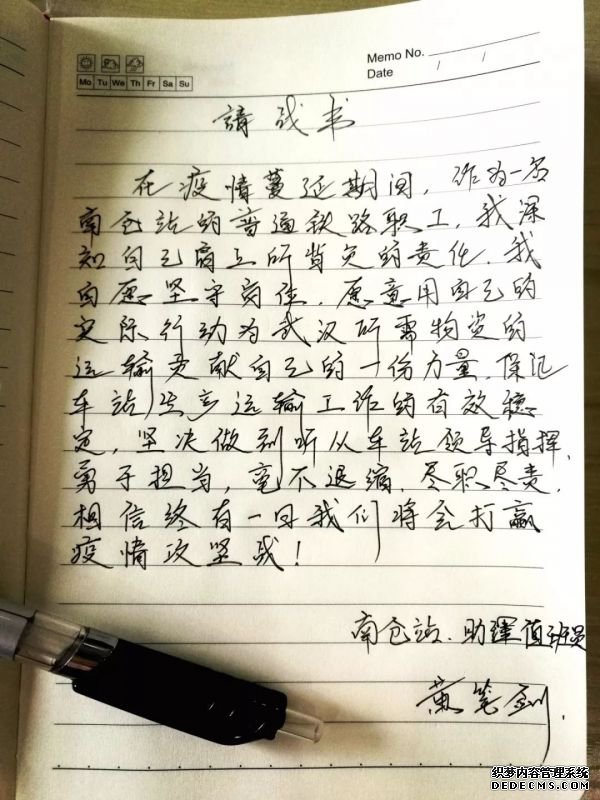 Memo No.
Mo Tu We Th Fr Sa Su
Date / /
請战书
在疫情蔓延期间，作为一名
南仓站的普通铁路职工，我深
知自己肩上所背负的责任，我
自愿坚守岗位，愿意用自己的
实际行动为武汉所需物资的
运输贡献自己的一份力量，保证
车站生产运输工作的有效稳
定，坚决做到听从车站领导指挥，
勇于担当，毫不退缩，尽职尽责，
相信终有一日我们将会打赢
疫情攻坚战！
南仓站．助理值班员
黄笔剑．
织梦内容管理系统
DEDECMS.COM